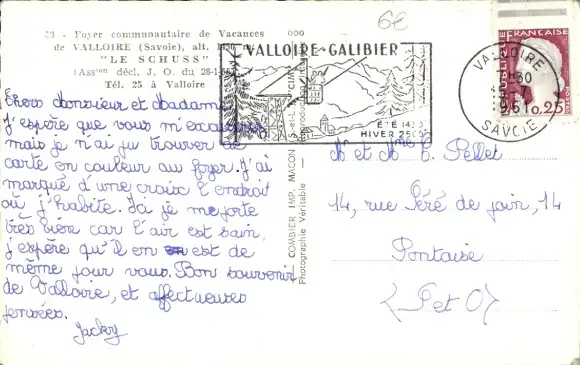 50 - Foyer communautaire de Vacances
de VALLOIRE (Savoie), alt. 1450 m.
"LE SCHUSS"
(Assion décl. J. O. du 28-1-56)
Tél. 25 à Valloire
Chers Monsieur et Madame
J'espère que vous m'excuserez
mais je n'ai pu trouver de
carte en couleur au foyer. J'ai
marqué d'une croix l'endroit
où j'habite. Ici je me porte
très bien car l'air est sain,
j'espère qu'il en est de
même pour vous. Bon souvenir
de Valloire, et affectueuses
pensées.
Jacky
COMBIER IMP. MACON
Photographie Véritable
6€
VALLOIRE-GALIBIER
ÉTÉ 1430
HIVER 2500
VALLOIRE
17H30
1961
SAVOIE
FRANÇAISE
0,25
Mr et Mme C. Pellet
14, rue Péré de join, 14
Pontoise
(S et O)